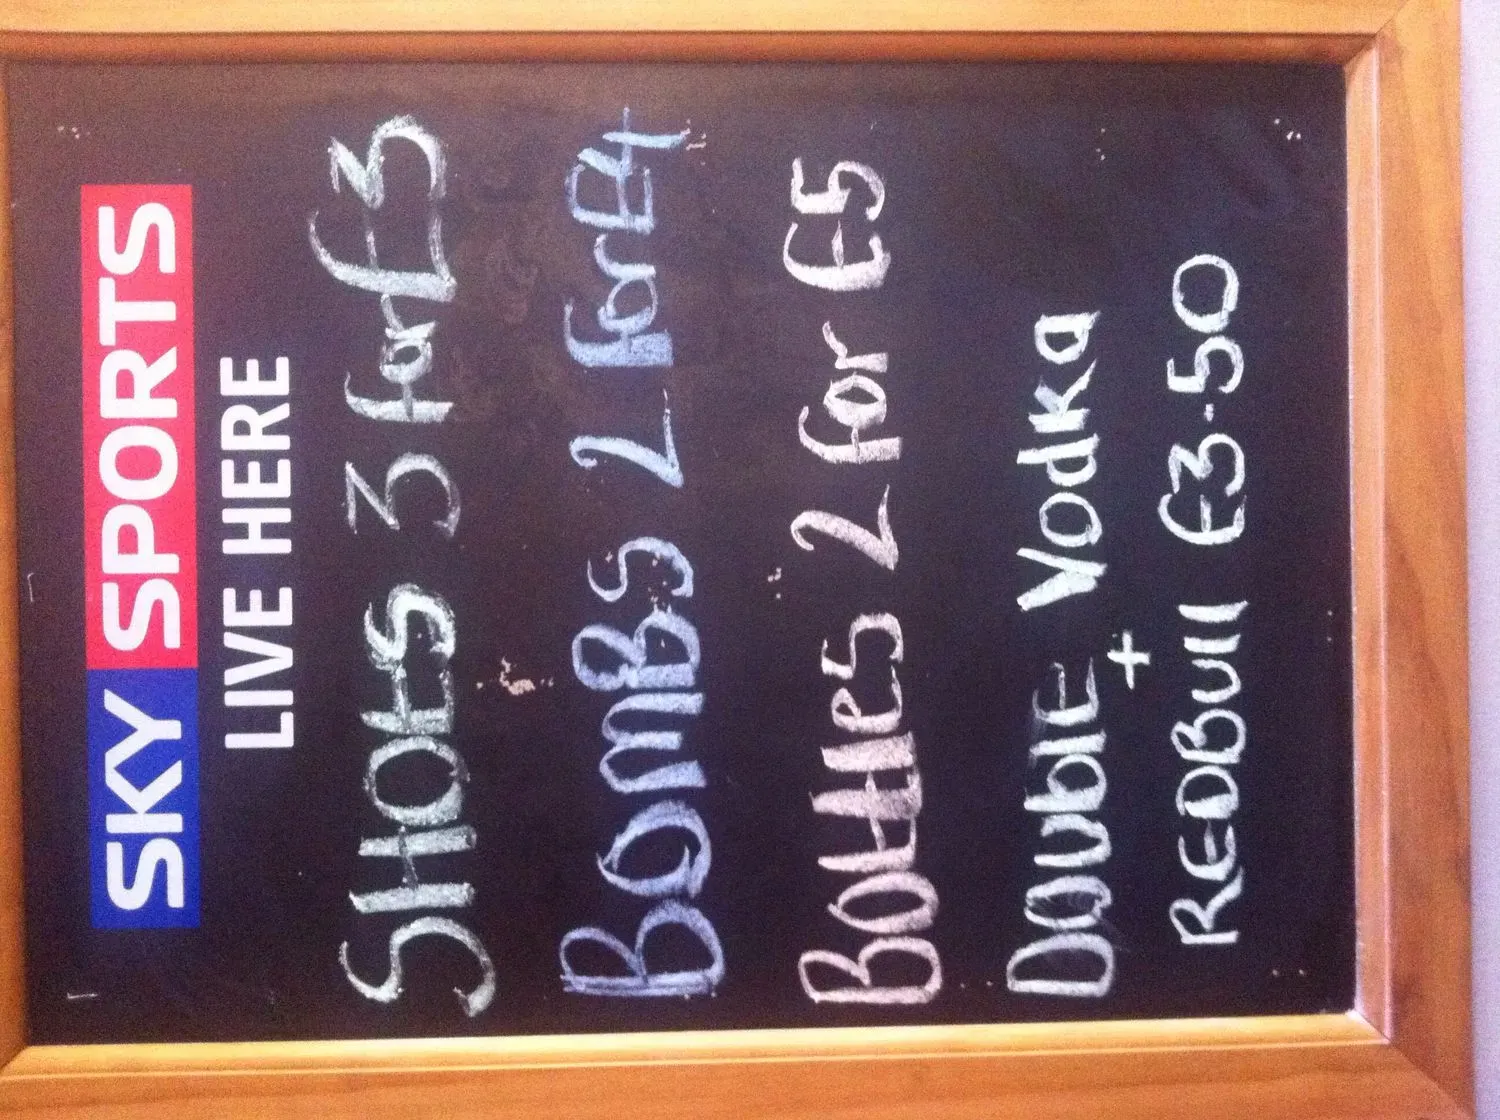 SKY SPORTS
LIVE HERE
SHOtS 3 for £3
BOMBS 2 for £4
BOttles 2 for £5
DOUblE Vodka
+
REDBUll £3.50